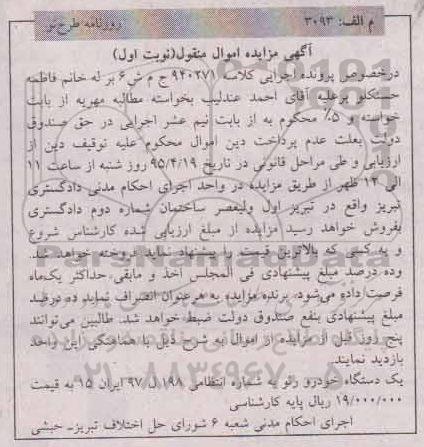 م الف: ۳۰۹۳
روزنامه طرح نو
آگهی مزایده اموال منقول(نوبت اول)
درخصوص پرونده اجرایی کلاسه ۹۴۰۲۷۱ ج م ش۶ بر له خانم فاطمه
برعلیه آقای احمد عندلیب بخواسته مطالبه مهریه از بابت
خواسته و ۵٪ محکوم به از بابت نیم عشر اجرایی در حق صندوق
دولت بعلت عدم پرداخت دین اموال محکوم علیه توقیف دین از
ارزیابی و طی مراحل قانونی در تاریخ ۹۵/۴/۱۹ روز شنبه از ساعت ۱۱
الی ۱۲ ظهر از طریق مزایده در واحد اجرای احکام مدنی دادگستری
تبریز واقع در تبریز اول ولیعصر ساختمان شماره دوم دادگستری
بفروش خواهد رسید مزایده از مبلغ ارزیابی شده کارشناس شروع
و به کسی که بالاترین قیمت را پیشنهاد نماید فروخته خواهد شد.
وده درصد مبلغ پیشنهادی فی المجلس اخذ و مابقی حداکثر یک‌ماه
فرصت داده می‌شود. برنده مزایده به هر عنوان انصراف نماید ده درصد
مبلغ پیشنهادی بنفع صندوق دولت ضبط خواهد شد. طالبین می‌توانند
پنج روز قبل از مزایده از اموال به شرح ذیل با هماهنگی این واحد
بازدید نمایند.
یک دستگاه خودرو رنو به شماره انتظامی ۱۹۸ل۹۷ ایران ۱۵ به قیمت
۱۹/۰۰۰/۰۰۰ ریال پایه کارشناسی
اجرای احکام مدنی شعبه ۶ شورای حل اختلاف تبریز- حبشی
ParsNamadData
۰۲۱-۸۸۳۴۹۶۷۰-۵